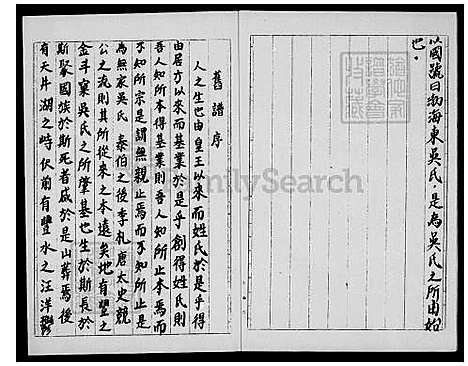 以國號曰渤海東吳氏是為吳氏之所由始
也
舊譜序
人之生也由皇王以來而姓氏於是乎得
由居方以來而基業於是乎創得姓氏則
吾人知所本得基業則吾人知所止本焉而
不知所宗是謂無親止焉而不知所止是
為無家吳氏泰伯之後季札唐太史兢
公之流則其所從來之本遠矣地有豐之
金斗窠吳氏之所肇基也生於斯長於
斯聚國族於斯死者咸於是山葬焉後
有天井湖之峙伏前有豐水之汪洋
FamilySearch